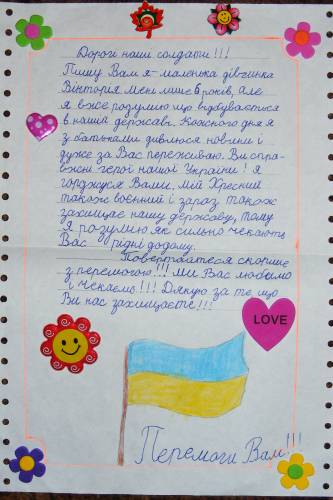 Дорогі наши солдати!!!
Пишу Вам я-маленька дівчинка
Вікторія. Мені лише 6 років, але
я вже розумію що відбувається
в нашій державі. Кожного дня я
з батьками дивлюся новини і
дуже за Вас переживаю. Ви спра-
вжні герої нашої України! Я
горджуся Вами. Мій Хресний
також воєнний і зараз також
захищає нашу державу, тому
я розумію як сильно чекають
Вас рідні додому.
Повертайтеся скоріше
з перемогою!!! Ми Вас любимо
і чекаємо!!! Дякую за те, що
Ви нас захищаєте!!!
LOVE
Перемоги Вам!!!